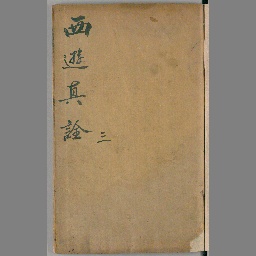 西遊真詮
三